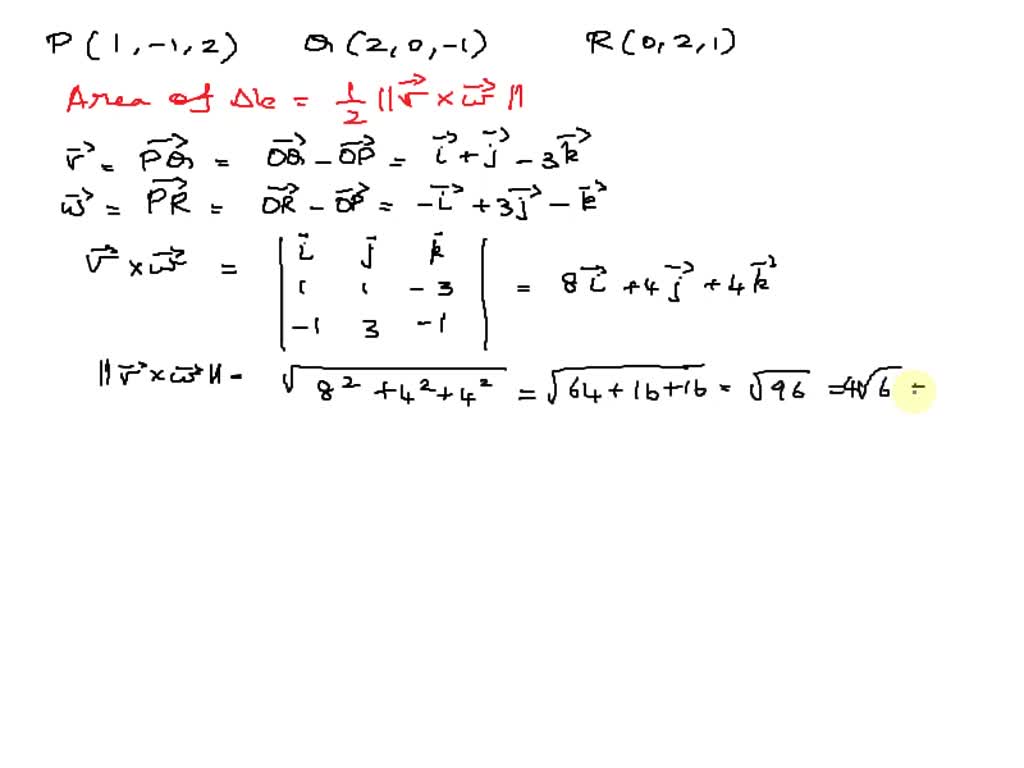 P(1,-1,2) Q(2,0,-1) R(0,2,1)
Area of Δle = 1/2 ||v⃗ × w⃗||
v⃗ = PQ⃗ = OQ⃗ - OP⃗ = i⃗ + j⃗ - 3k⃗
w⃗ = PR⃗ = OR⃗ - OP⃗ = -i⃗ + 3j⃗ - k⃗
v⃗ × w⃗ = | i⃗ j⃗ k⃗ | = 8i⃗ + 4j⃗ + 4k⃗
1 1 -3
-1 3 -1
||v⃗ × w⃗|| = √(8² + 4² + 4²) = √(64 + 16 + 16) = √96 = 4√6 =